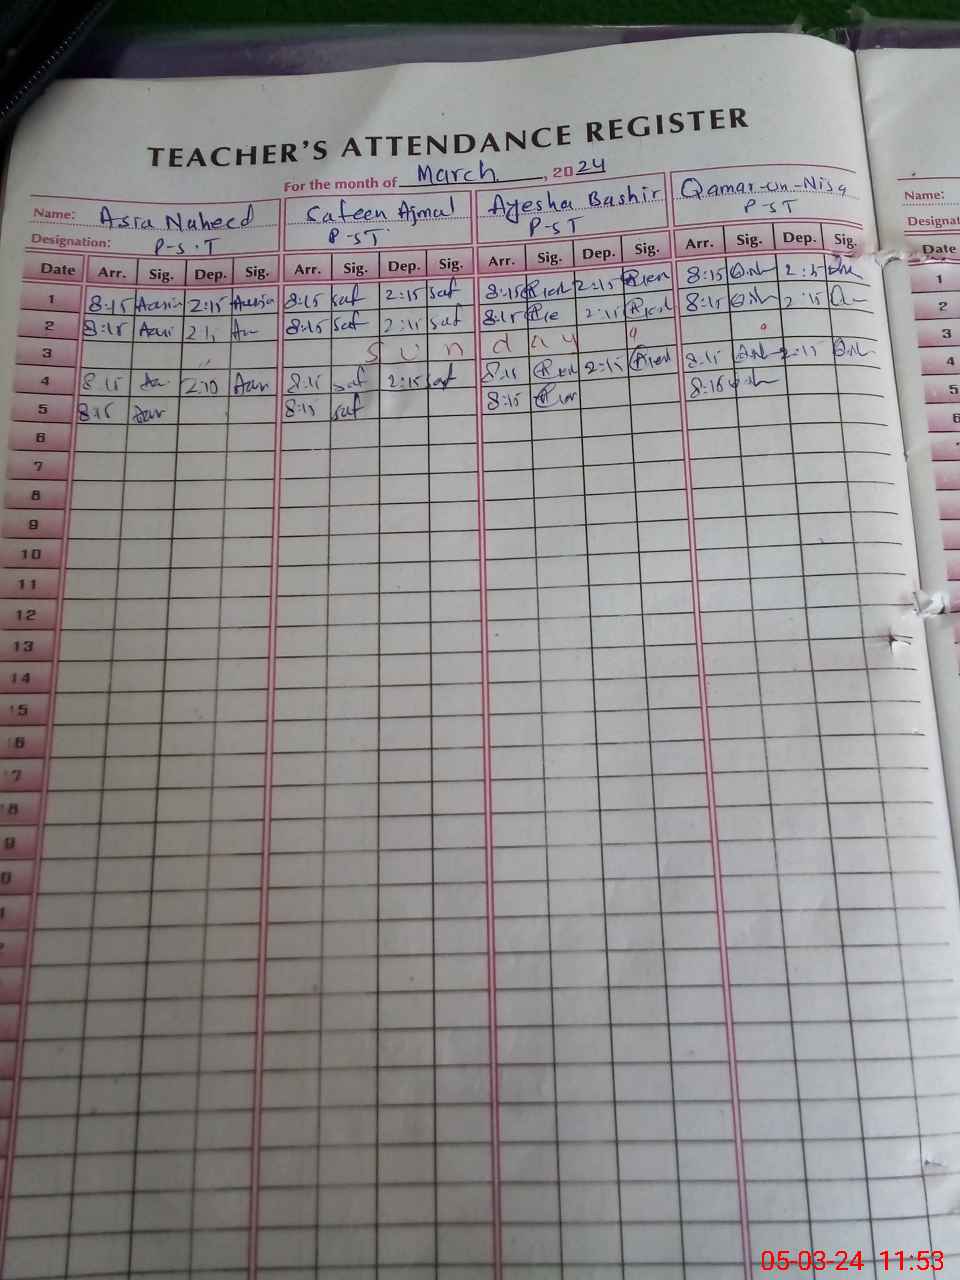 TEACHER'S ATTENDANCE REGISTER
For the month of March, 2024
Name: Asia Naheed Safeen Ajmal Ayesha Bashir Qamar-un-Nisa Name:
Designation: P-S.T P-ST P-ST P-ST
Date Arr. Sig. Dep. Sig. Arr. Sig. Dep. Sig. Arr. Sig. Dep. Sig. Arr. Sig. Dep. Sig. Date
1 8:15 2:15 8:15 saf 2:15 saf 8:15 2:15 8:15 2:15 1
2 8:15 8:15 saf 2:15 saf 8:15 2:15 8:15 2:15 2
3 Sunday 3
4 8:15 2:10 8:15 saf 2:15 saf 8:15 2:15 8:15 2:15 4
5 8:15 8:15 saf 8:15 8:15 5
6 6
7
8
9
10
11
12
13
14
15
16
17
18
9
0
05-03-24 11:53